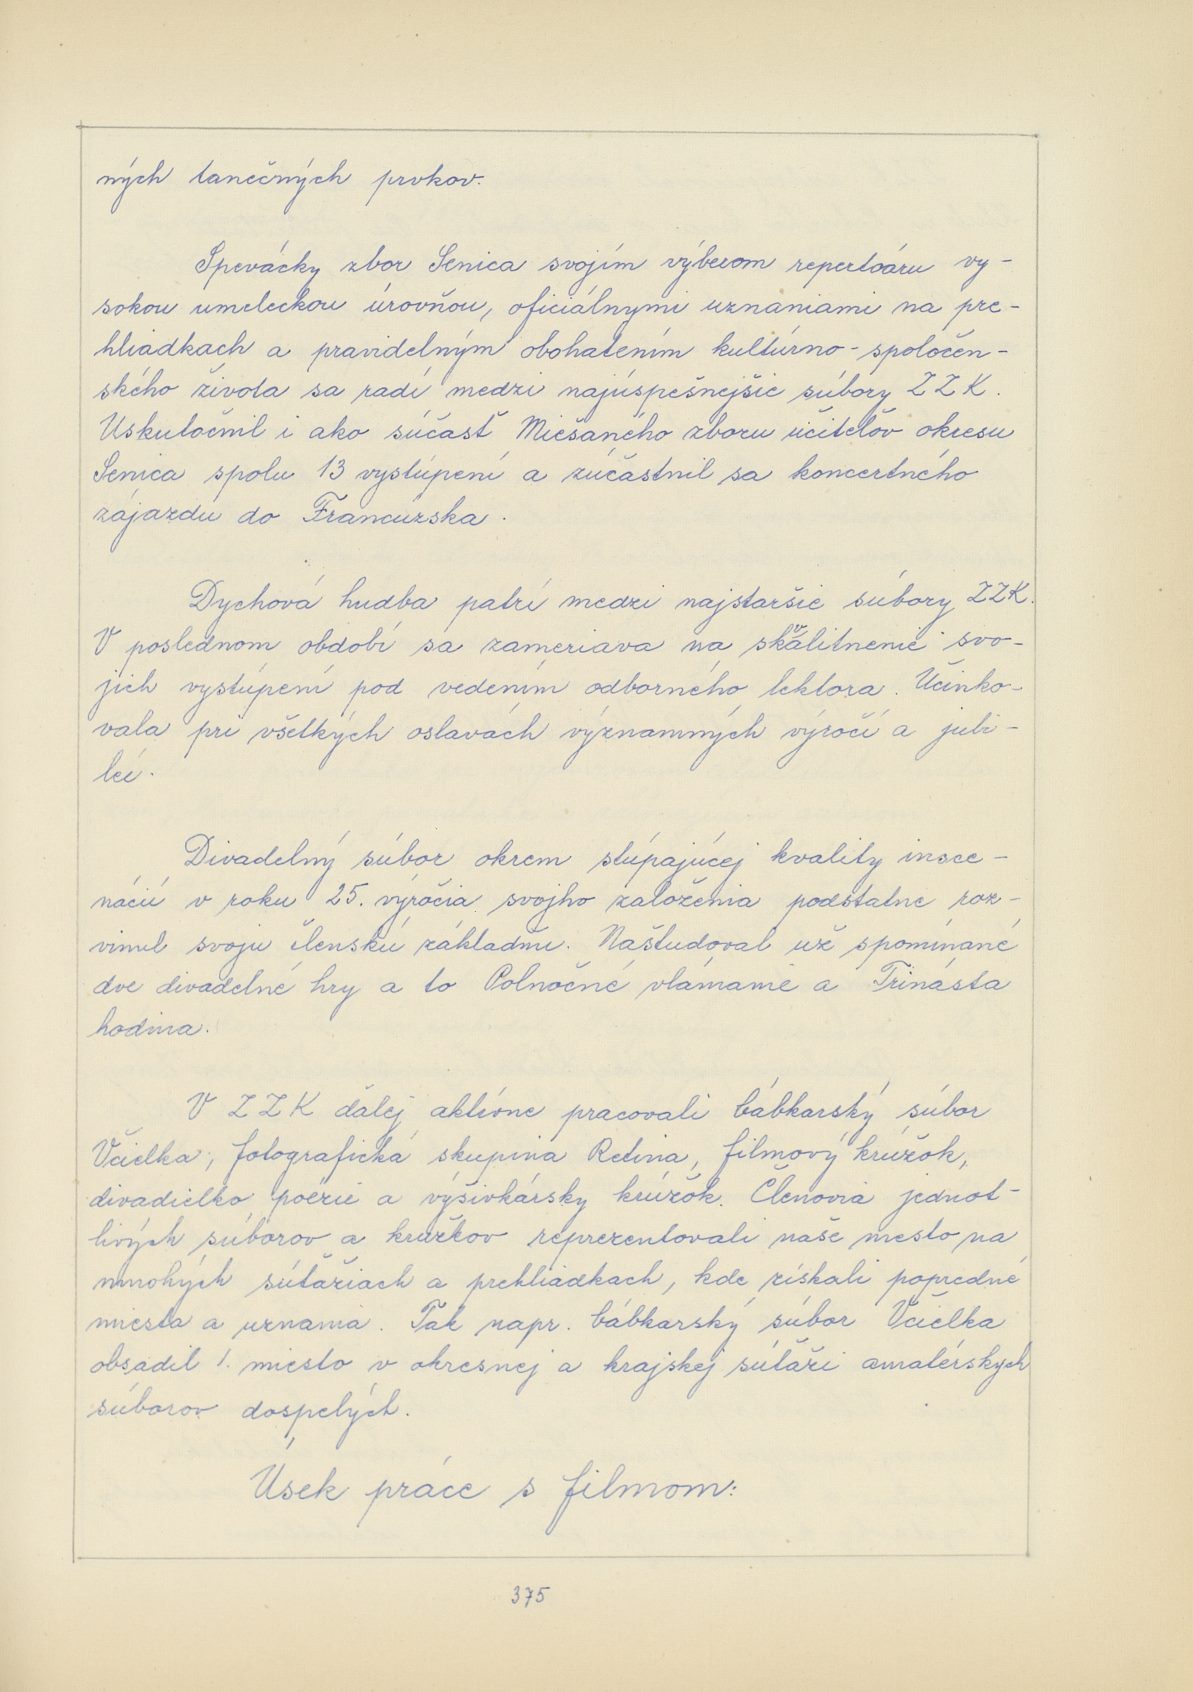 ných tanečných prvkov.
Spevácky zbor Senica svojím výberom repertoáru vy-
sokou umeleckou úrovňou, oficiálnymi uznaniami na pre-
hliadkach a pravidelným obohatením kultúrno-spoločen-
ského života sa radí medzi najúspešnejšie súbory ZZK.
Uskutočnil i ako súčasť Miešaného zboru učiteľov okresu
Senica spolu 13 vystúpení a zúčastnil sa koncertného
zájazdu do Francúzska.
Dychová hudba patrí medzi najstaršie súbory ZZK.
V poslednom období sa zameriava na skvalitnenie svo-
jich vystúpení pod vedením odborného lektora. Účinko-
vala pri všetkých oslavách významných výročí a jubi-
leí.
Divadelný súbor okrem stúpajúcej kvality insce-
nácií v roku 25. výročia svojho založenia podstatne roz-
vinul svoju členskú základňu. Naštudoval už spomínané
dve divadelné hry a to Polnočné vlámanie a Trinásta
hodina.
V ZZK ďalej aktívne pracovali bábkarský súbor
Včielka, fotografická skupina Retina, filmový krúžok,
divadielko poézie a výšivkársky krúžok. Členovia jednot-
livých súborov a krúžkov reprezentovali naše mesto na
mnohých súťažiach a prehliadkach, kde získali popredné
miesta a uznania. Tak napr. bábkarský súbor Včielka
obsadil 1. miesto v okresnej a krajskej súťaži amatérskych
súborov dospelých.
Úsek práce s filmom:
375